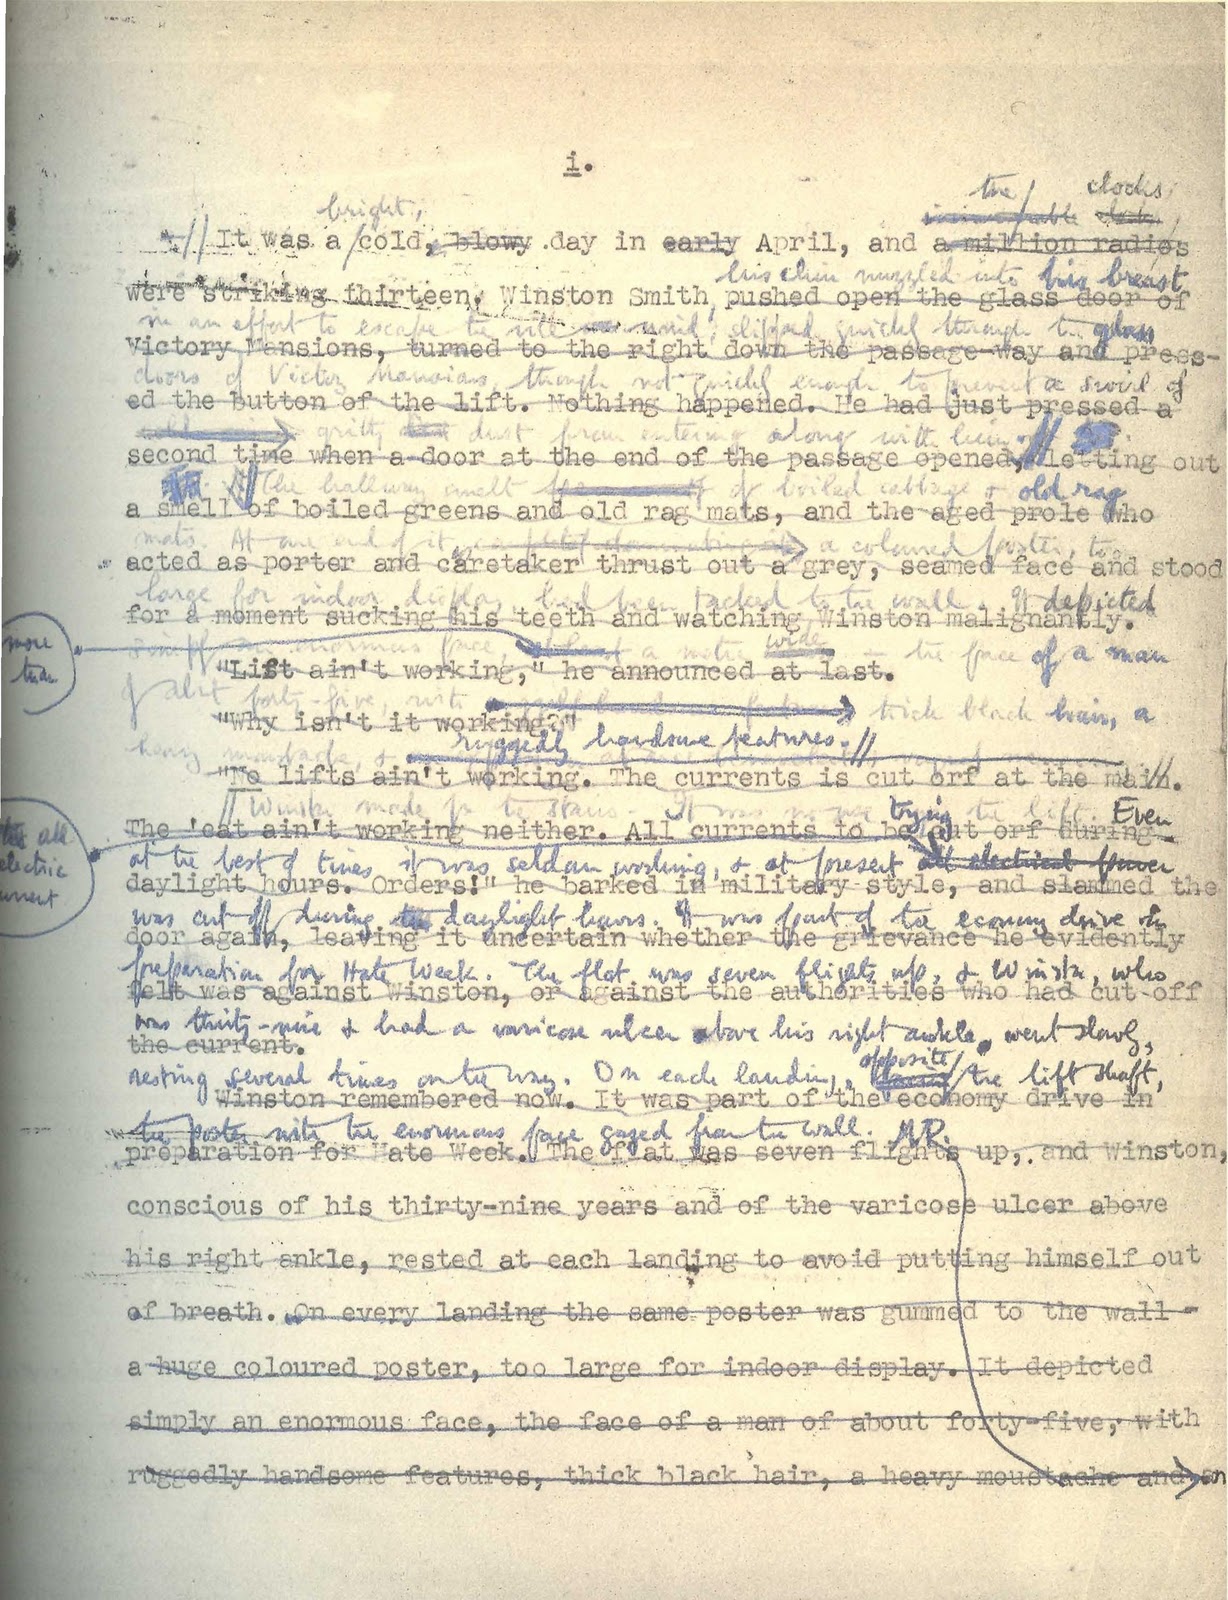 i.
the clocks
bright,
It was a cold, blowy day in early April, and a million radios
his chin nuzzled into his breast
were striking thirteen. Winston Smith pushed open the glass door of
in an effort to escape the vile wind, slipped quickly through the glass
Victory Mansions, turned to the right down the passage-way and press-
doors of Victory Mansions, though not quickly enough to prevent a swirl of
ed the button of the lift. Nothing happened. He had just pressed a
gritty dust from entering along with him.
second time when a door at the end of the passage opened, letting out
The hallway smelt of boiled cabbage & old rag
a smell of boiled greens and old rag mats, and the aged prole who
mats. At one end of it a coloured poster, too
acted as porter and caretaker thrust out a grey, seamed face and stood
large for indoor display, had been tacked to the wall. It depicted
for a moment sucking his teeth and watching Winston malignantly.
more
than
simply an enormous face, a metre wide - the face of a man
"Lift ain't working," he announced at last.
of about forty-five, with thick black hair, a
"Why isn't it working?"
heavy moustache, & ruggedly handsome features.
"No lifts ain't working. The currents is cut orf at the main.
Winston made for the stairs. It was no use trying the lift. Even
The 'eat ain't working neither. All currents to be cut orf during
all
electric
current
at the best of times it was seldom working, & at present all electrical power
daylight hours. Orders!" he barked in military style, and slammed the
was cut off during the daylight hours. It was part of the economy drive in
door again, leaving it uncertain whether the grievance he evidently
preparation for Hate Week. The flat was seven flights up, & Winston, who
felt was against Winston, or against the authorities who had cut off
was thirty-nine & had a varicose ulcer above his right ankle, went slowly,
the current.
resting several times on the way. On each landing, opposite the lift shaft,
Winston remembered now. It was part of the economy drive in
the poster with the enormous face gazed from the wall. N.P.
preparation for Hate Week. The flat was seven flights up, and Winston,
conscious of his thirty-nine years and of the varicose ulcer above
his right ankle, rested at each landing to avoid putting himself out
of breath. On every landing the same poster was gummed to the wall -
a huge coloured poster, too large for indoor display. It depicted
simply an enormous face, the face of a man of about forty-five, with
ruggedly handsome features, thick black hair, a heavy moustache and an